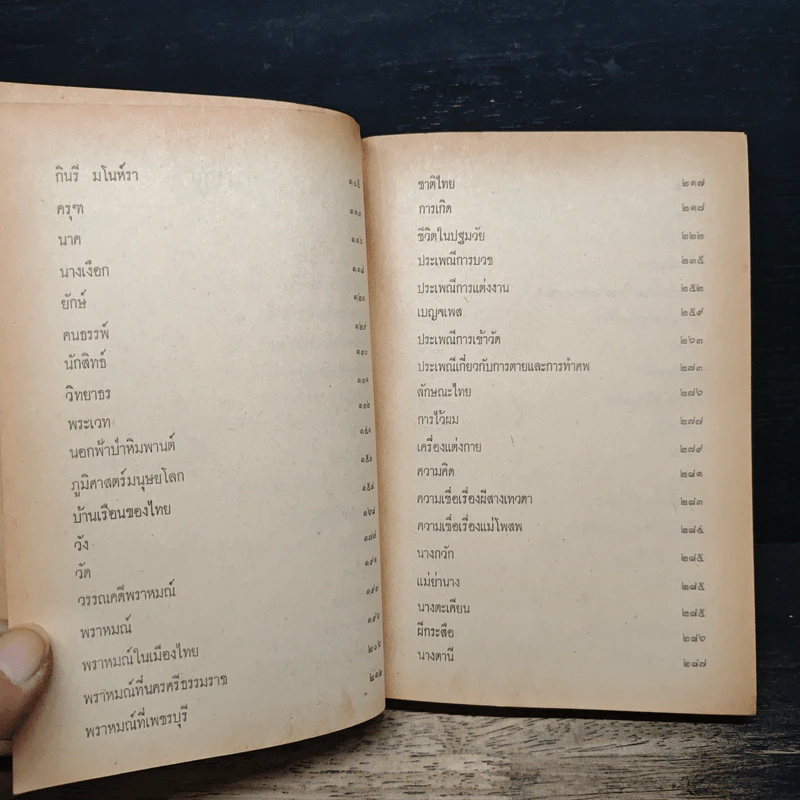 กินรี มโนห์รา ๑๐๕
ครุฑ ๑๑๓
นาค ๑๑๖
นางเงือก ๑๑๘
ยักษ์ ๑๒๓
คนธรรพ์ ๑๒๙
นักสิทธ์ ๑๓๐
วิทยาธร ๑๓๑
พระเวท ๑๓๒
นอกฟ้าป่าหิมพานต์ ๑๔๐
ภูมิศาสตร์มนุษยโลก ๑๕๓
บ้านเรือนของไทย ๑๕๘
วัง ๑๖๘
วัด ๑๗๗
วรรณคดีพราหมณ์ ๑๙๑
พราหมณ์ ๑๙๓
พราหมณ์ในเมืองไทย ๑๙๖
พราหมณ์ที่นครศรีธรรมราช ๒๐๖
พราหมณ์ที่เพชรบุรี ๒๑๒
ชาติไทย ๒๑๗
การเกิด ๒๑๗
ชีวิตในปฐมวัย ๒๒๒
ประเพณีการบวช ๒๓๕
ประเพณีการแต่งงาน ๒๕๒
เบญจเพส ๒๕๙
ประเพณีการเข้าวัด ๒๖๓
ประเพณีเกี่ยวกับการตายและการทำศพ ๒๗๓
ลักษณะไทย ๒๗๖
การไว้ผม ๒๗๗
เครื่องแต่งกาย ๒๗๙
ความคิด ๒๘๑
ความเชื่อเรื่องผีสางเทวดา ๒๘๓
ความเชื่อเรื่องแม่โพสพ ๒๘๔
นางกวัก ๒๘๕
แม่ย่านาง ๒๘๕
นางตะเคียน ๒๘๕
ผีกระสือ ๒๘๖
นางตานี ๒๘๗